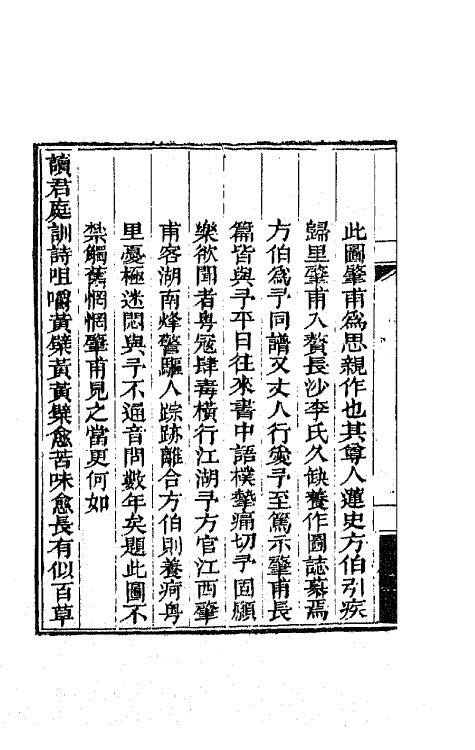 此圖肇甫為思親作也其尊人蓮史方伯引疾
歸里肇甫入贅長沙李氏久缺養作圖誌慕焉
方伯為予同譜又丈人行愛予至篤示肇甫長
篇皆與予平日往來書中語樸摯痛切予固願
樂欲聞者粵寇肆毒橫行江湖予方官江西肇
甫客湖南烽警驅人踪跡離合方伯則養疴粵
里憂極迷悶與予不通音問數年矣題此圖不
禁觸舊惘惘肇甫見之當更何如
讀君庭訓詩咀嚼黃檗黃黃檗愈苦味愈長有似百草